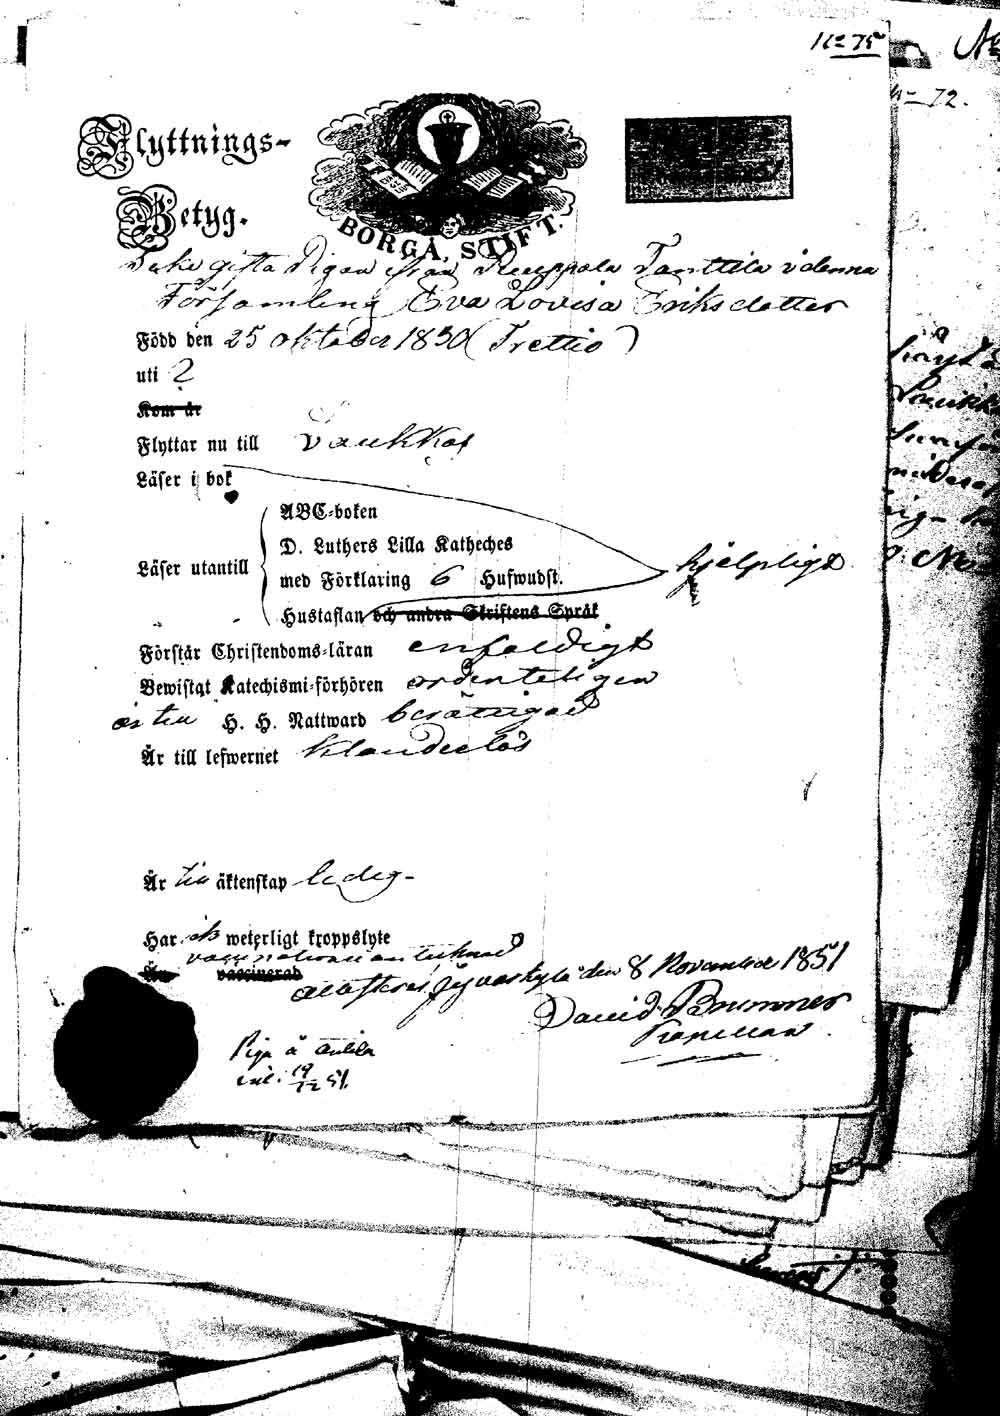 No 75
No 72.
Flyttnings-
Betyg.
BORGÅ, STIFT.
gifta Pigan ifrån Ruuppola Tanttila i denna
Församling Eva Lovisa Eriksdotter
Född den 25 oktober 1830 (Trettio)
uti 2
Kom år
Flyttar nu till Saukkos
Läser i bok
ABC-boken
D. Luthers Lilla Katheches
Läser utantill
med Förklaring 6 Hufwudst.
hjelpligt
Hustaflan och andra Skriftens Språk
Förstår Christendoms-läran enfaldigt
Bewistat Katechismi-förhören ordenteligen
är till H. H. Nattward berättigad
Är till lefwernet klanderlös
Är till äktenskap ledig-
Har ej weterligt kroppslyte
vaccination antecknad
Är vaccinerad
attesteras, Jyvaskyla den 8 November 1851
David Brunner
Kapellan.
Piga å Anttila
inl. 19/12 51.